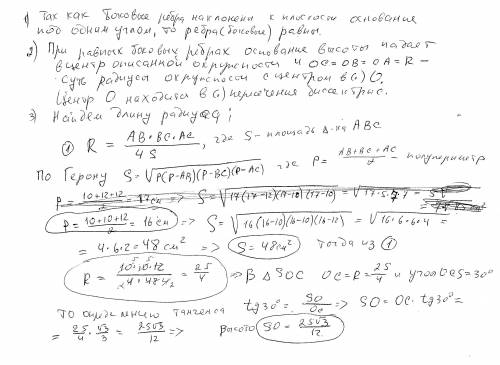 1) Так как боковые ребра наклонены к плоскости основания
под одним углом, то ребра (боковые) равны.
2) При равных боковых ребрах основание высоты падает
в центр описанной окружности и OC = OB = OA = R –
суть радиусы окружности с центром в (·) O.
Центр O находится в (·) пересечения биссектрис.
3) Найдем длину радиуса:
① R = AB·BC·AC / 4S, где S – площадь Δ-ка ABC
По Герону S = √P(P-AB)(P-BC)(P-AC) где P = AB+BC+AC / 2 – полупериметр
P = 10+12+12 / 2 = 17 см => S = √17(17-12)(17-12)(17-10) = √17·5·
P = 10+10+12 / 2 = 16 см => S = √16(16-10)(16-10)(16-12) = √16·6·6·4 =
= 4·6·2 = 48 см² => S = 48 см² Тогда из ①
R = 10·10·12 / 4·48 = 25/4 => В Δ SOC OC = R = 25/4 и угол OCS = 30°
По определению тангенса tg30° = SO/OC => SO = OC·tg30° =
= 25/4 · √3/3 = 25√3/12 => Высота SO = 25√3/12